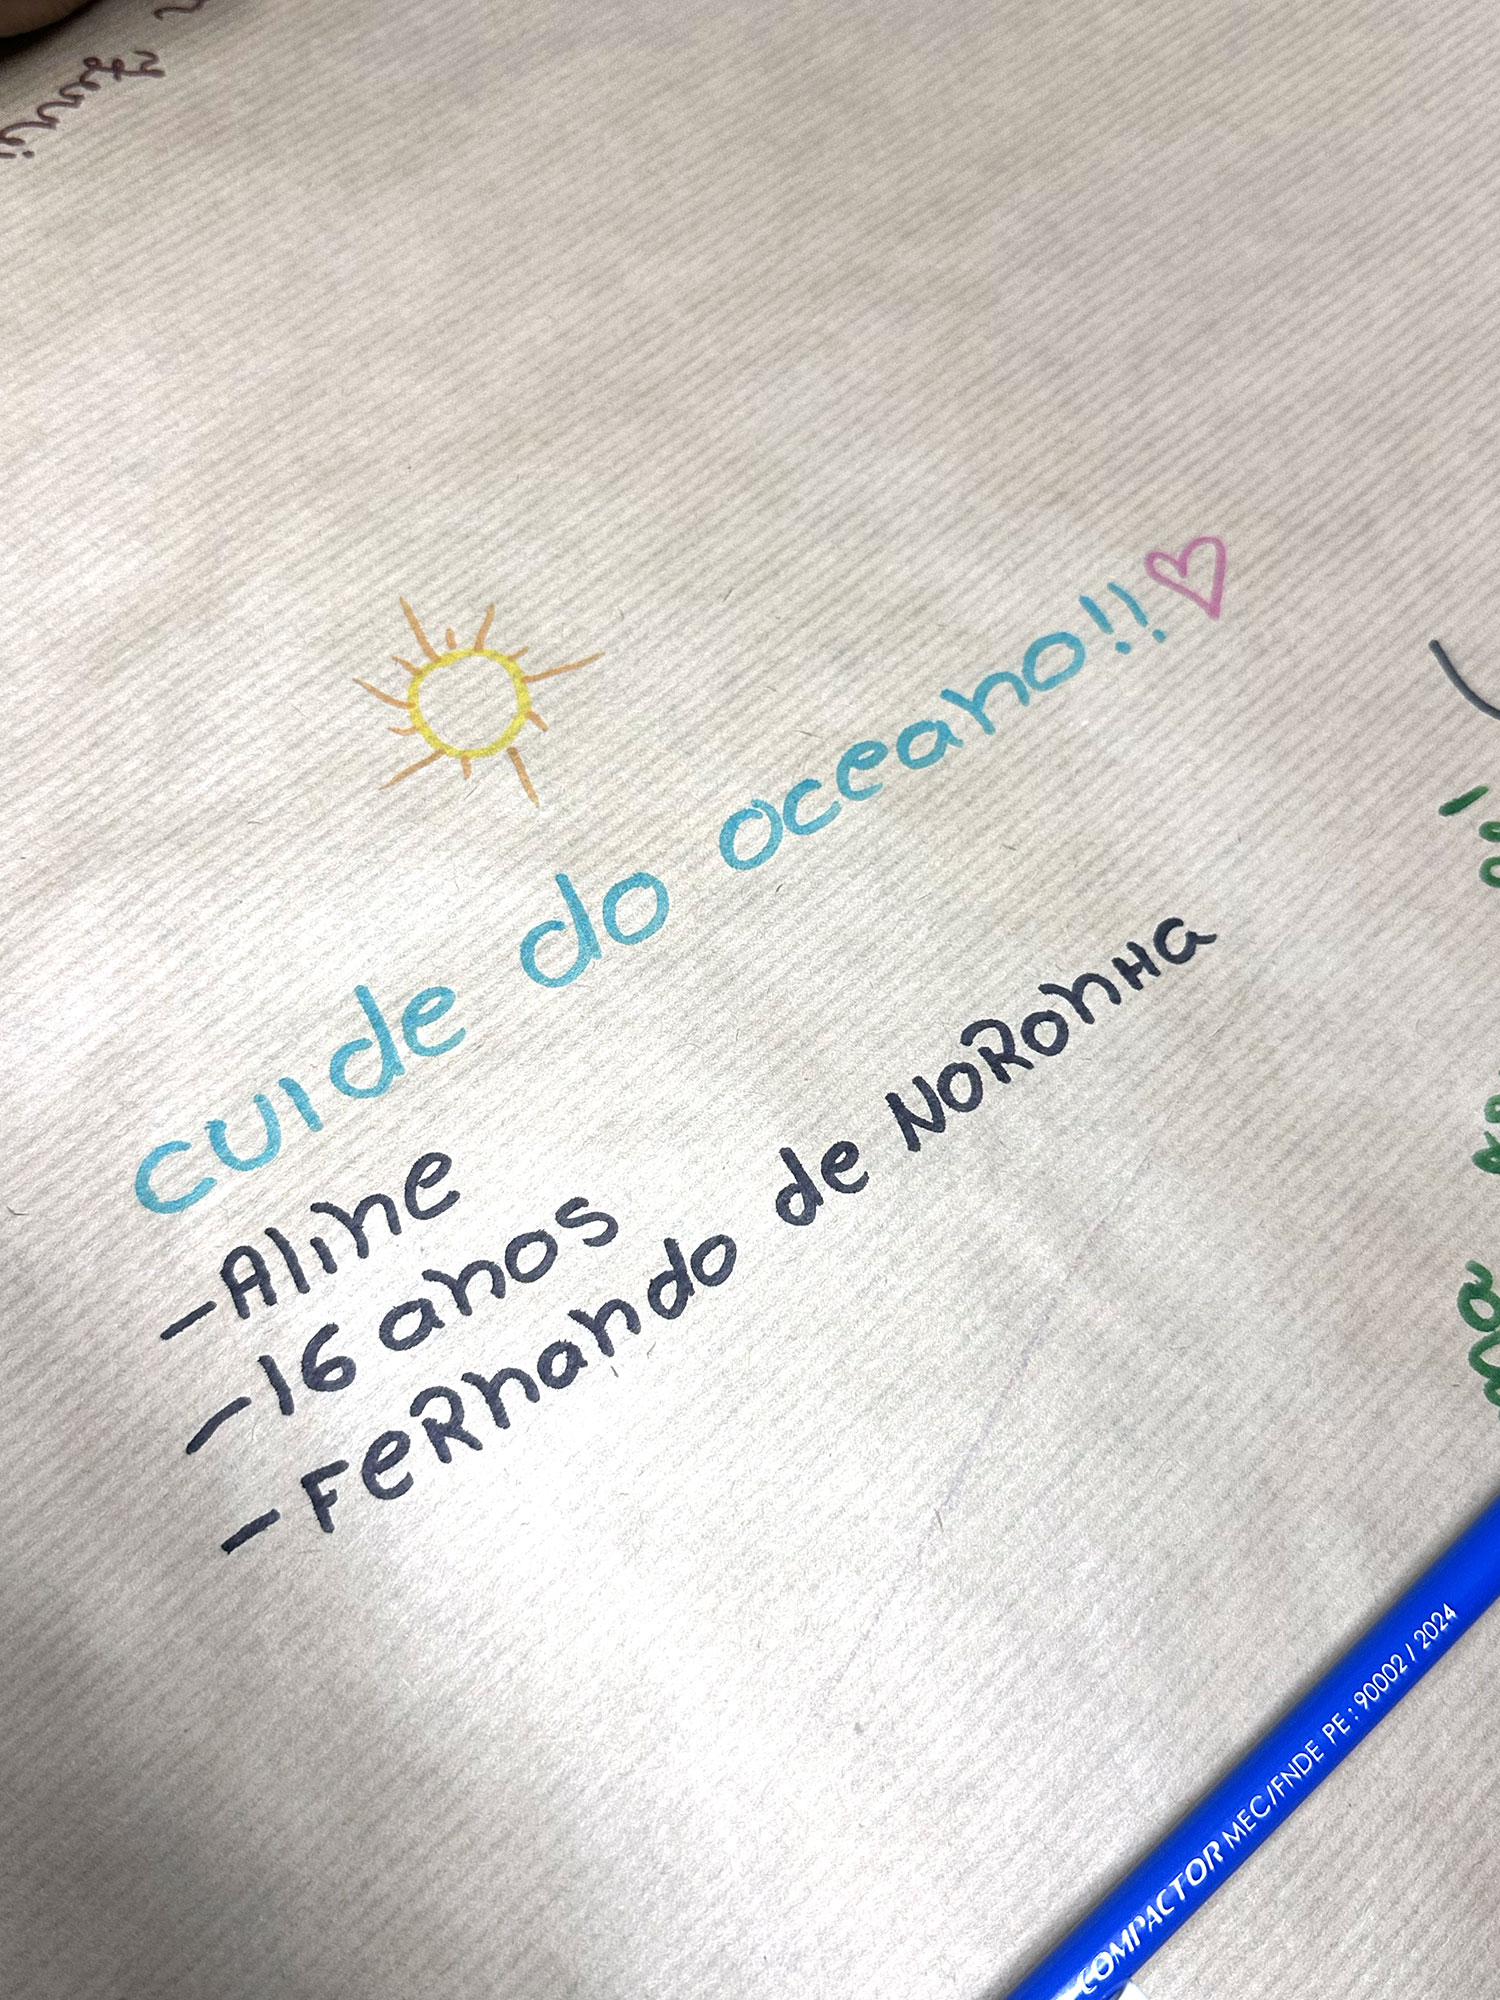 cuide do oceano!!
- Aline
- 16 anos
- FeRnando de NoRonHa
COMPACTOR MEC/FNDE PE: 90002 / 2024